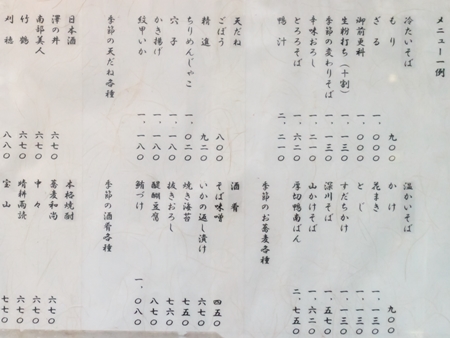 メニュー一例
冷たいそば
もり 九〇〇
ざる 一、〇〇〇
御前更科 一、〇〇〇
生粉打ち（十割） 一、一三〇
季節の変わりそば 一、一三〇
辛味おろし 一、二一〇
とろろそば 一、六二〇
鴨汁 二、二一〇
天だね
ごぼう 八〇〇
精進 九二〇
ちりめんじゃこ 一、〇二〇
穴子 一、一八〇
かき揚げ 一、一八〇
紋甲いか 一、一八〇
季節の天だね各種
日本酒
澤の井 六七〇
南部美人 六七〇
竹鶴 六七〇
刈穂 八八〇
温かいそば
かけ 九〇〇
花まき 一、一三〇
とじ 一、一三〇
すだちかけ 一、一三〇
深川そば 一、五七〇
山かけそば 一、六二〇
厚切鴨南ばん 二、七五〇
季節のお蕎麦各種
酒肴
そば味噌 四五〇
いかの返し漬け 六七〇
焼き海苔 七五〇
抜きおろし 七六〇
醍醐豆腐 八七〇
鮪づけ 一、〇八〇
季節の酒肴各種
本格焼酎
蕎麦和尚 六七〇
中々 六七〇
晴耕雨読 六七〇
宝山 七七〇